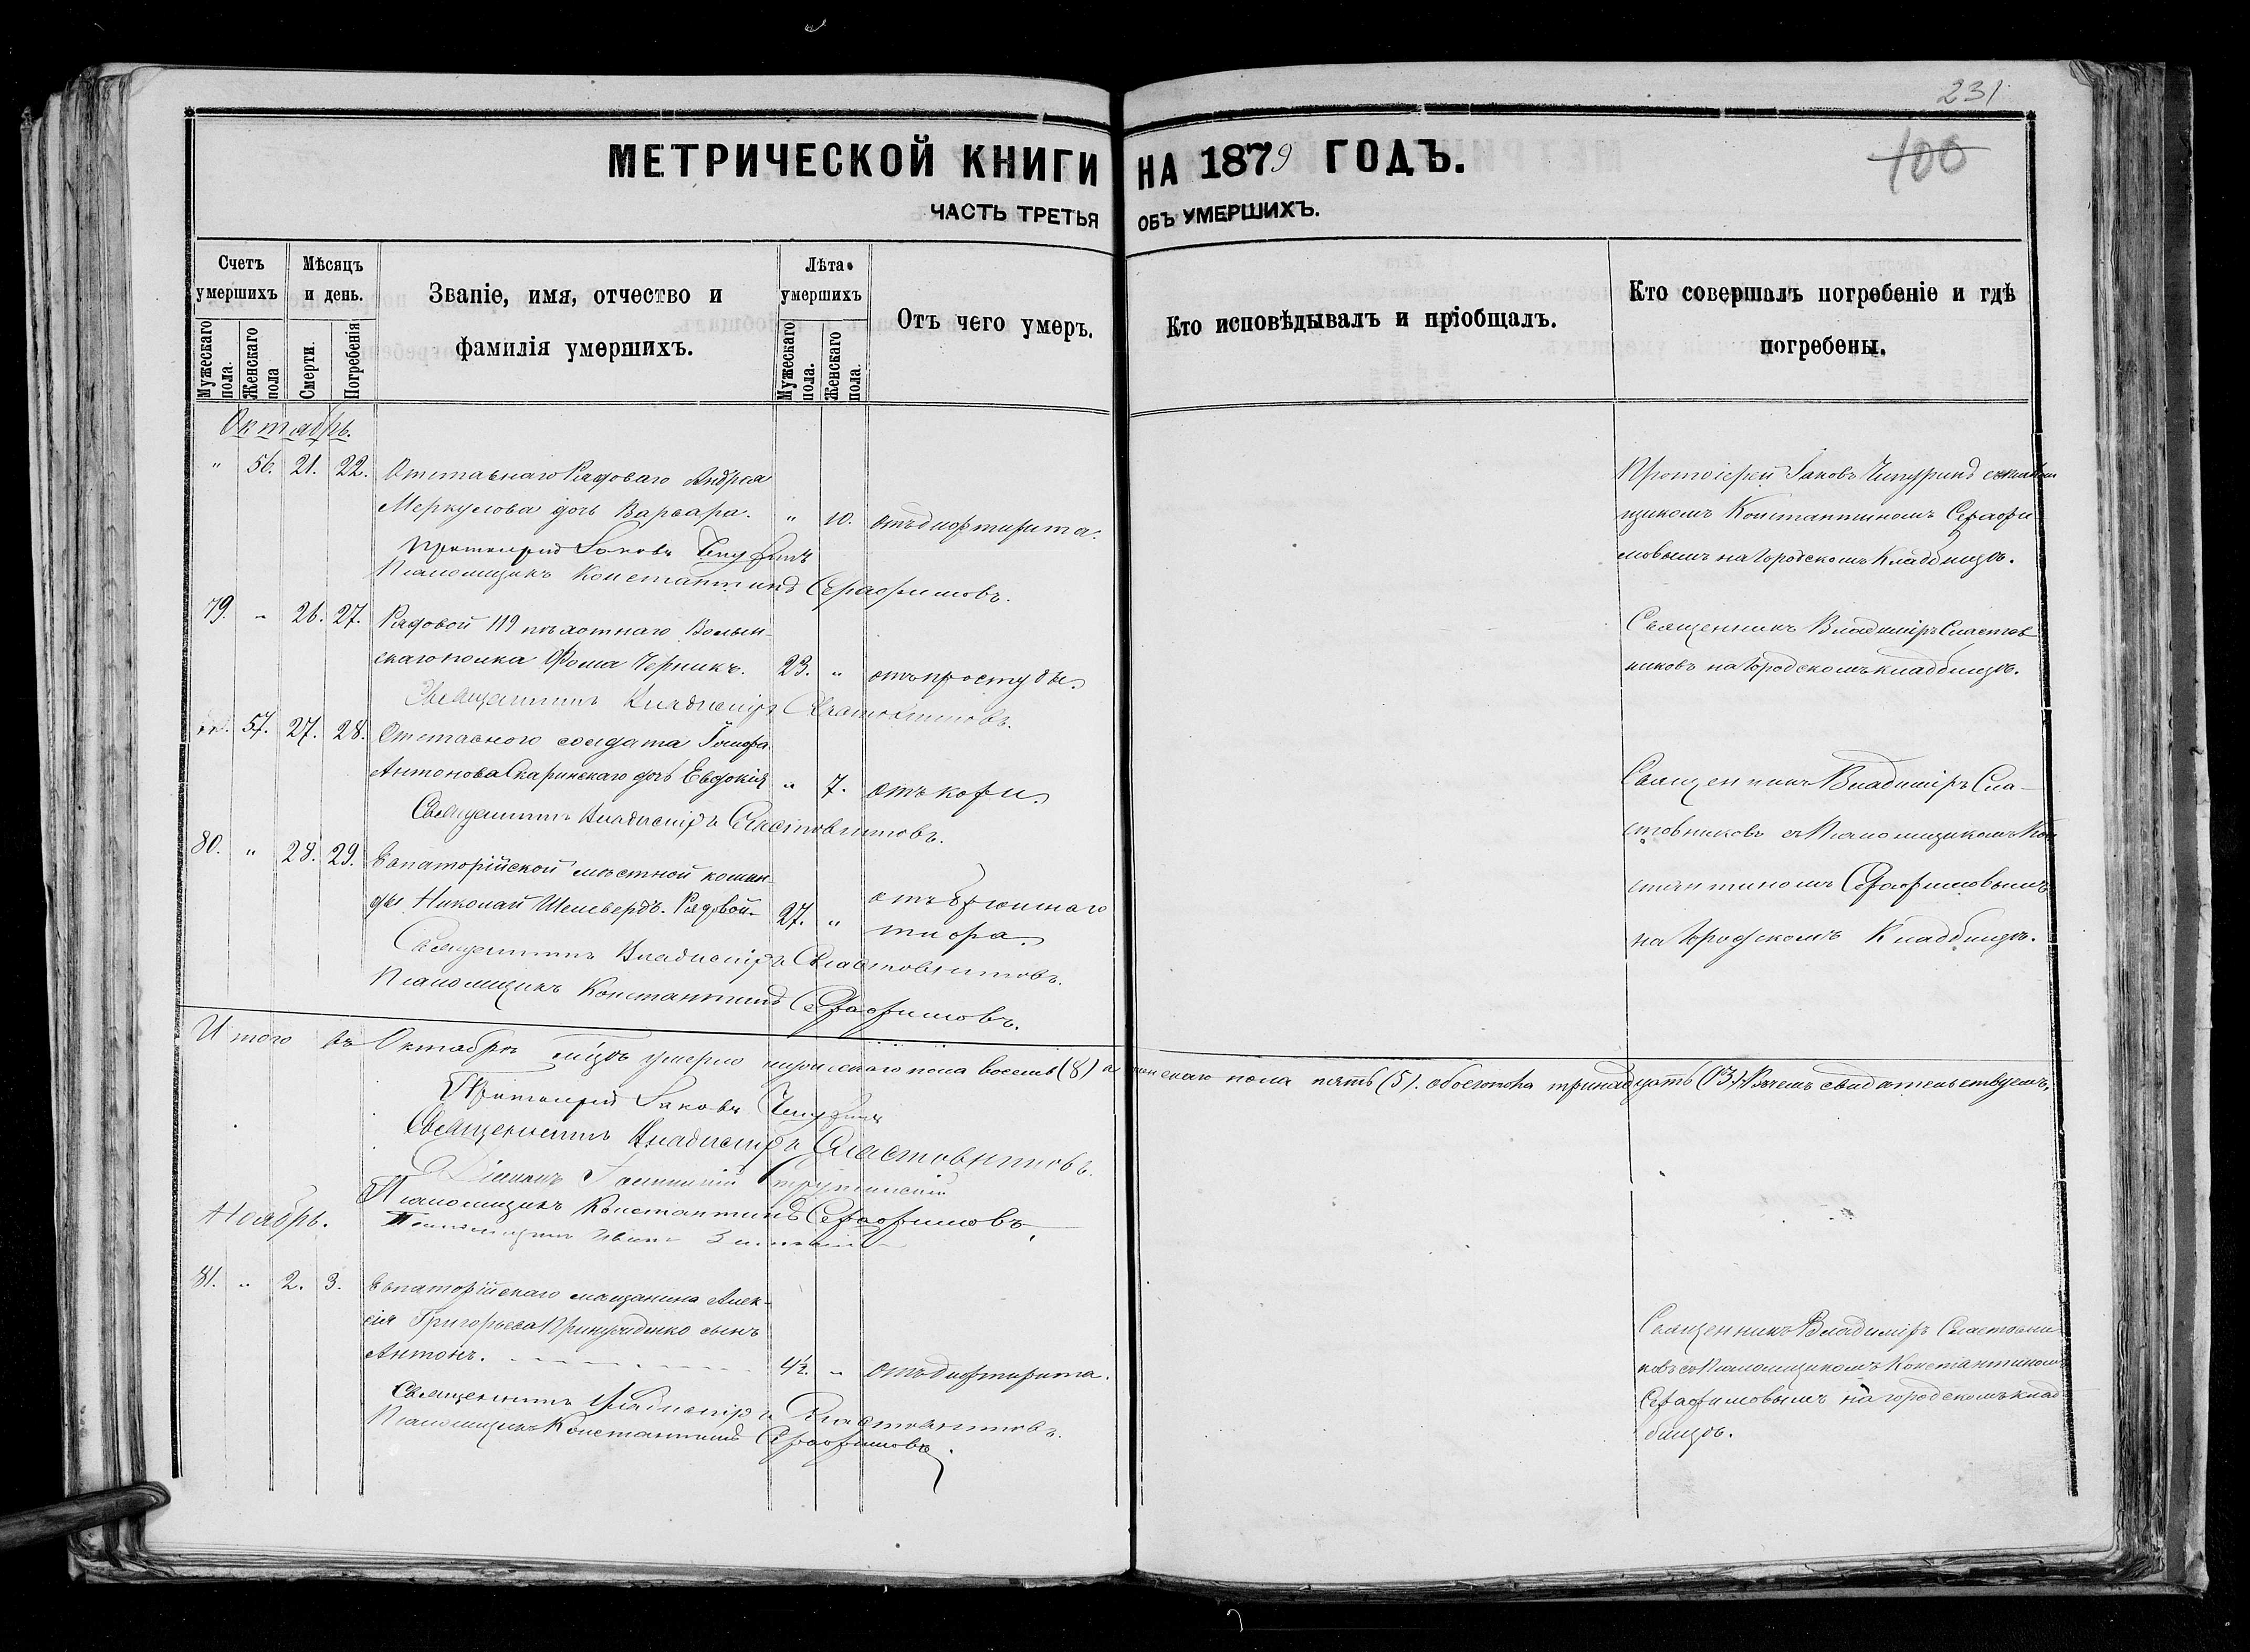 231
100
МЕТРИЧЕСКОЙ КНИГИ НА 1879 ГОДЪ.
ЧАСТЬ ТРЕТЬЯ ОБЪ УМЕРШИХЪ.
Счетъ умершихъ
Мѣсяцъ и день.
Званіе, имя, отчество и фамилія умершихъ.
Лѣта умершихъ
Отъ чего умеръ.
Кто исповѣдывалъ и пріобщалъ.
Кто совершалъ погребеніе и гдѣ погребены.
Мужескаго пола.
Женскаго пола
Смерти.
Погребенія
Мужескаго пола.
Женскаго пола.
Октябрь.
" 56. 21. 22. Отставнаго Рядоваго Андрея
Меркулова дочь Варвара. " 10. отъ дифтерита.
Протоіерей Іаковъ Чепуринъ
Псаломщикъ Константинъ Серафимовъ.
Протоіерей Іаковъ Чепуринъ съ псалом
щикомъ Константиномъ Серафи
мовымъ на Городскомъ Кладбищѣ.
79. " 26. 27. Рядовой 119 пѣхотнаго Волын-
скаго полка Фома Черникъ. 23. " отъ простуды.
Священникъ Владиміръ Сластовниковъ.
Священникъ Владиміръ Сластов
никовъ на Городскомъ кладбищѣ.
57. 27. 28. Отставного солдата
Антонова Скаринскаго дочь Евдокія " 7. отъ кори.
Священникъ Владиміръ Сластовниковъ.
Священникъ Владиміръ Сла-
стовниковъ съ Псаломщикомъ Кон
стантиномъ Серафимовымъ
на Городскомъ Кладбищѣ.
80. " 28. 29. Евпаторійской мѣстной коман
ды Николай Шелевердъ. Рядовой. 27. " отъ брюшнаго
тифа.
Священникъ Владиміръ Сластовниковъ.
Псаломщикъ Константинъ Серафимовъ.
Итого въ Октябрѣ мѣсцѣ умерло мужескаго пола восемь (8) а женскаго пола пять (5). обоего пола тринадцать (13). Въ чемъ свидѣтельствуемъ,
Протоіерей Іаковъ Чепуринъ
Священникъ Владиміръ Сластовниковъ.
Діаконъ
Псаломщикъ Константинъ Серафимовъ.
Псаломщикъ Иванъ
Ноябрь.
81. " 2. 3. Евпаторійскаго мѣщанина Алек-
сія Григорьева сынъ
Антонъ. 4½. " отъ дифтерита.
Священникъ Владиміръ Сластовниковъ.
Псаломщикъ Константинъ Серафимовъ.
Священникъ Владиміръ Сластовни
ковъ съ Псаломщикомъ Константиномъ
Серафимовымъ на городскомъ клад
бищѣ.